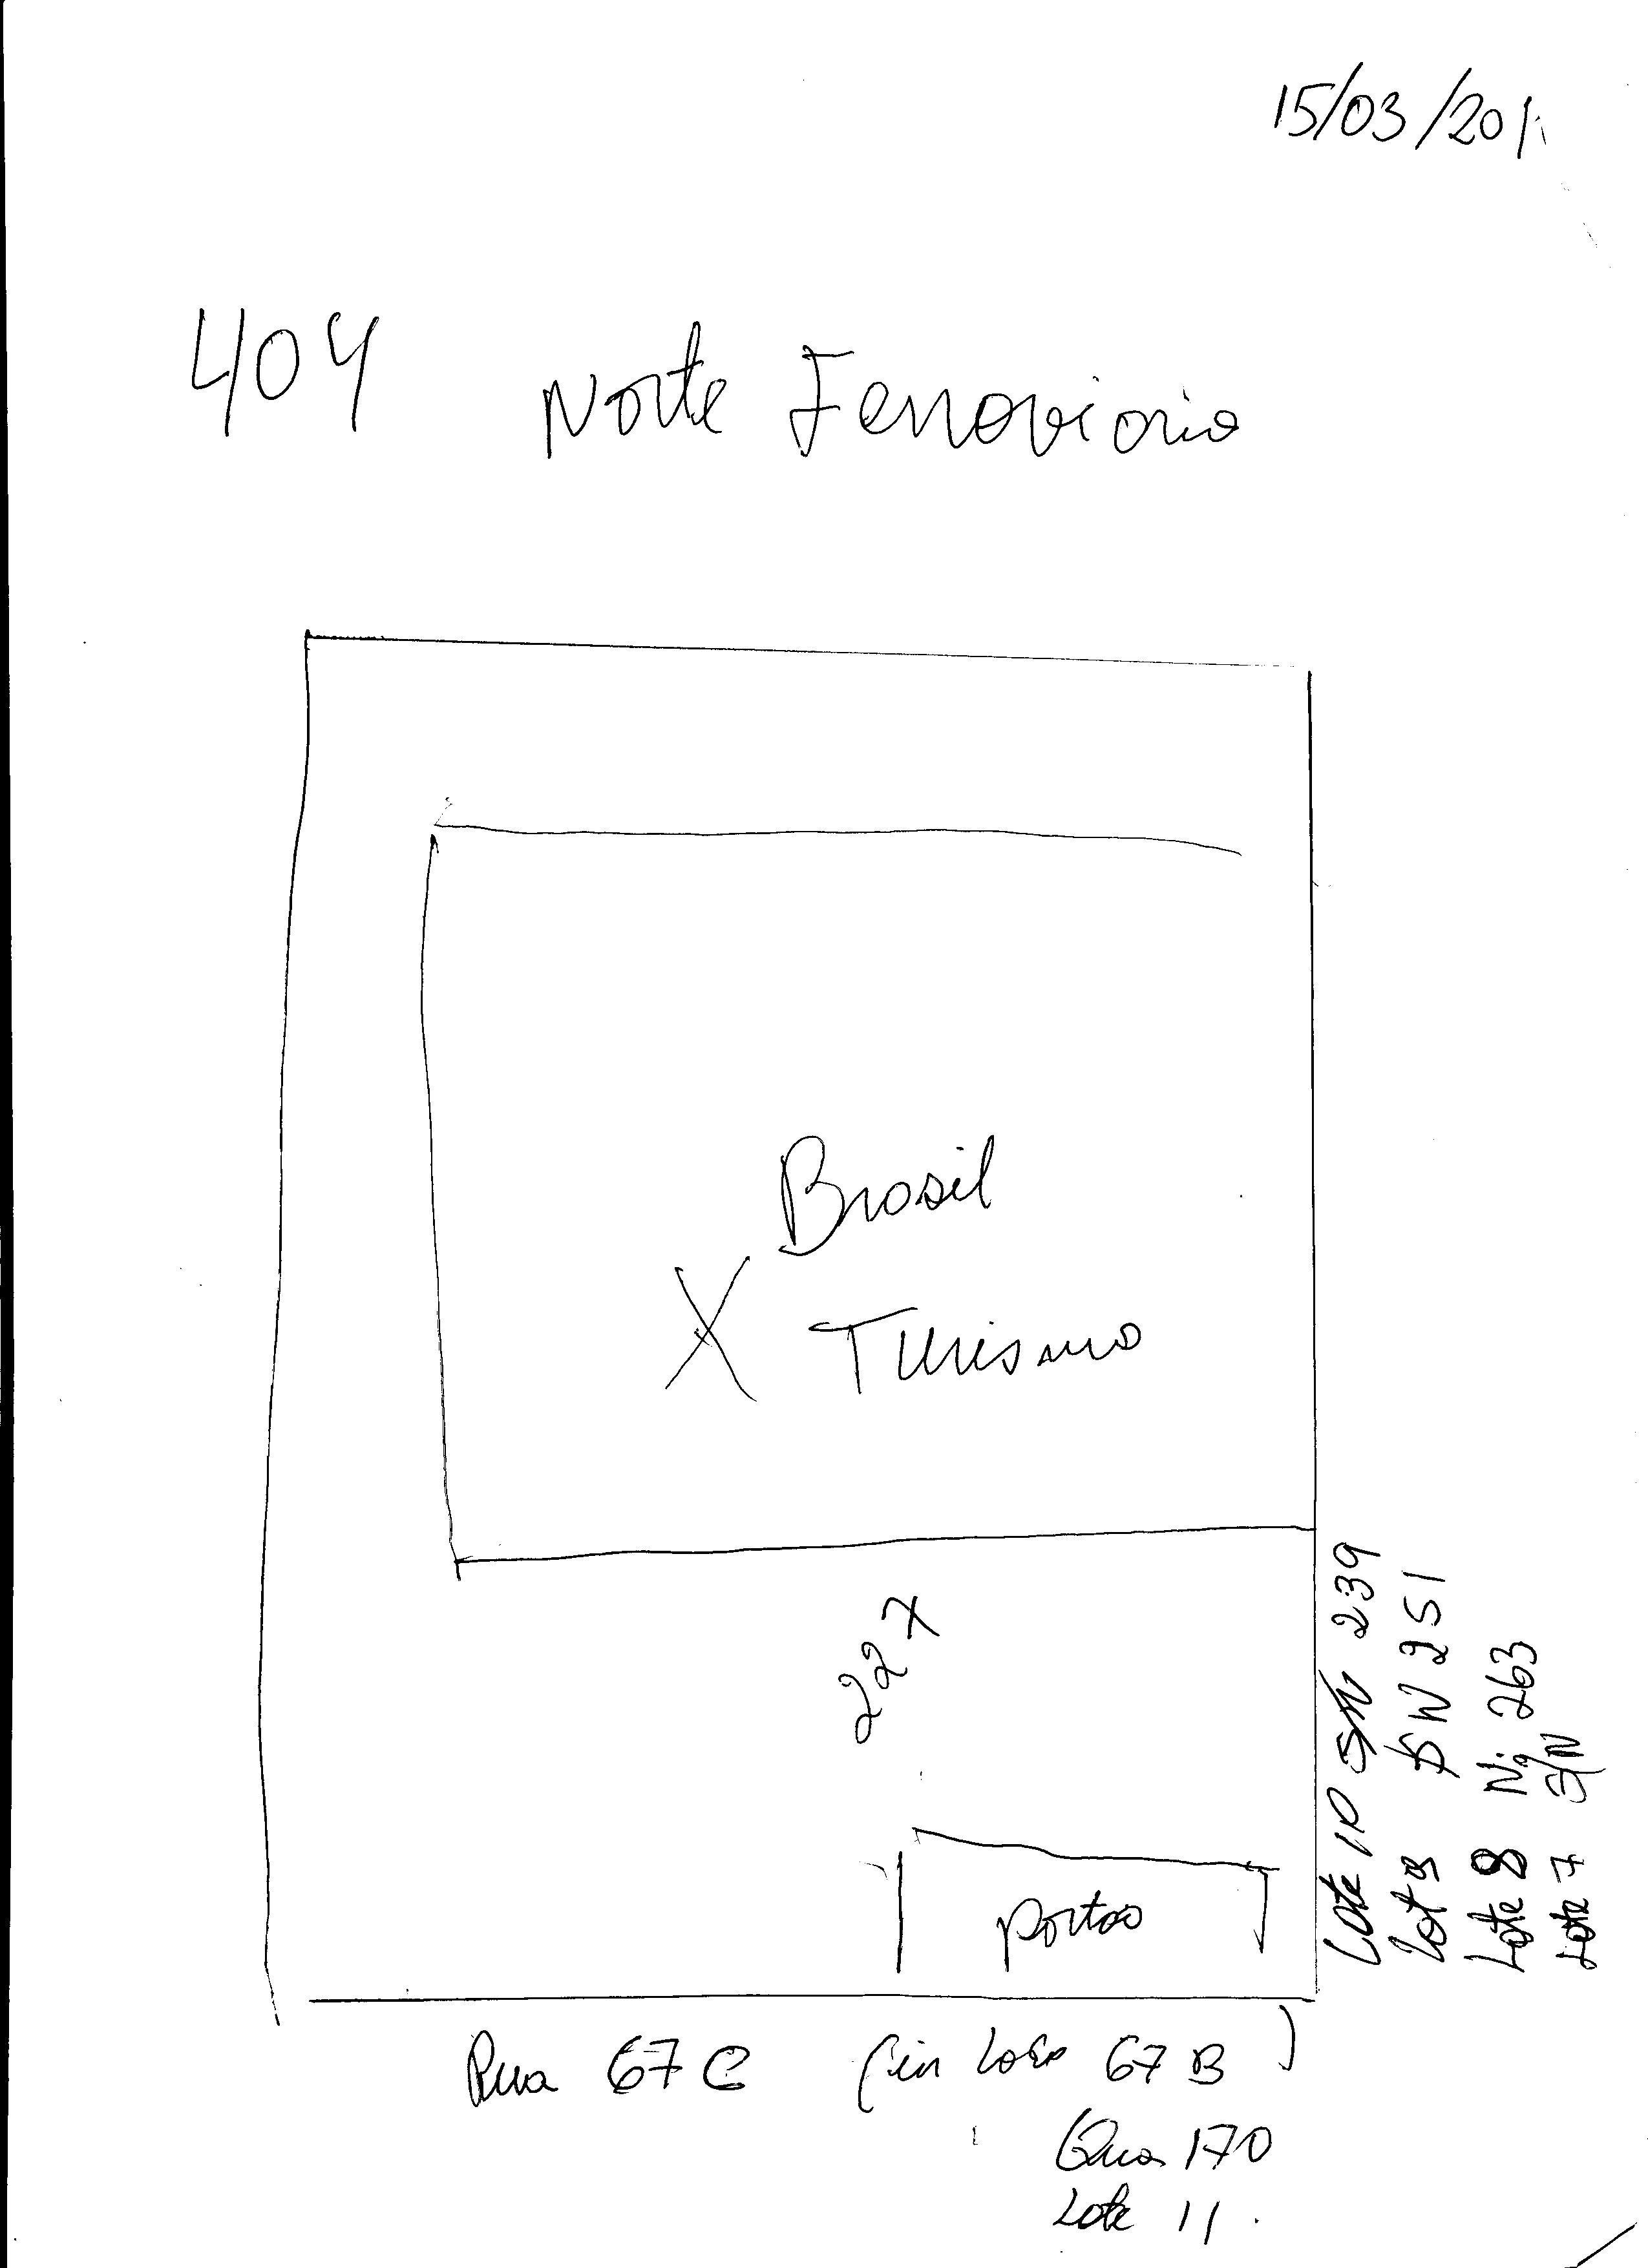 15/03/2011
404 Norte Ferroviario
Brasil
X Turismo
227
portao
Lote 10 S/N 239
Lot 9 251
Lote 8 Nº 263
Lote 7 S/N
Rua 67 C (in Loco 67 B)
Qua 170
Lote 11.